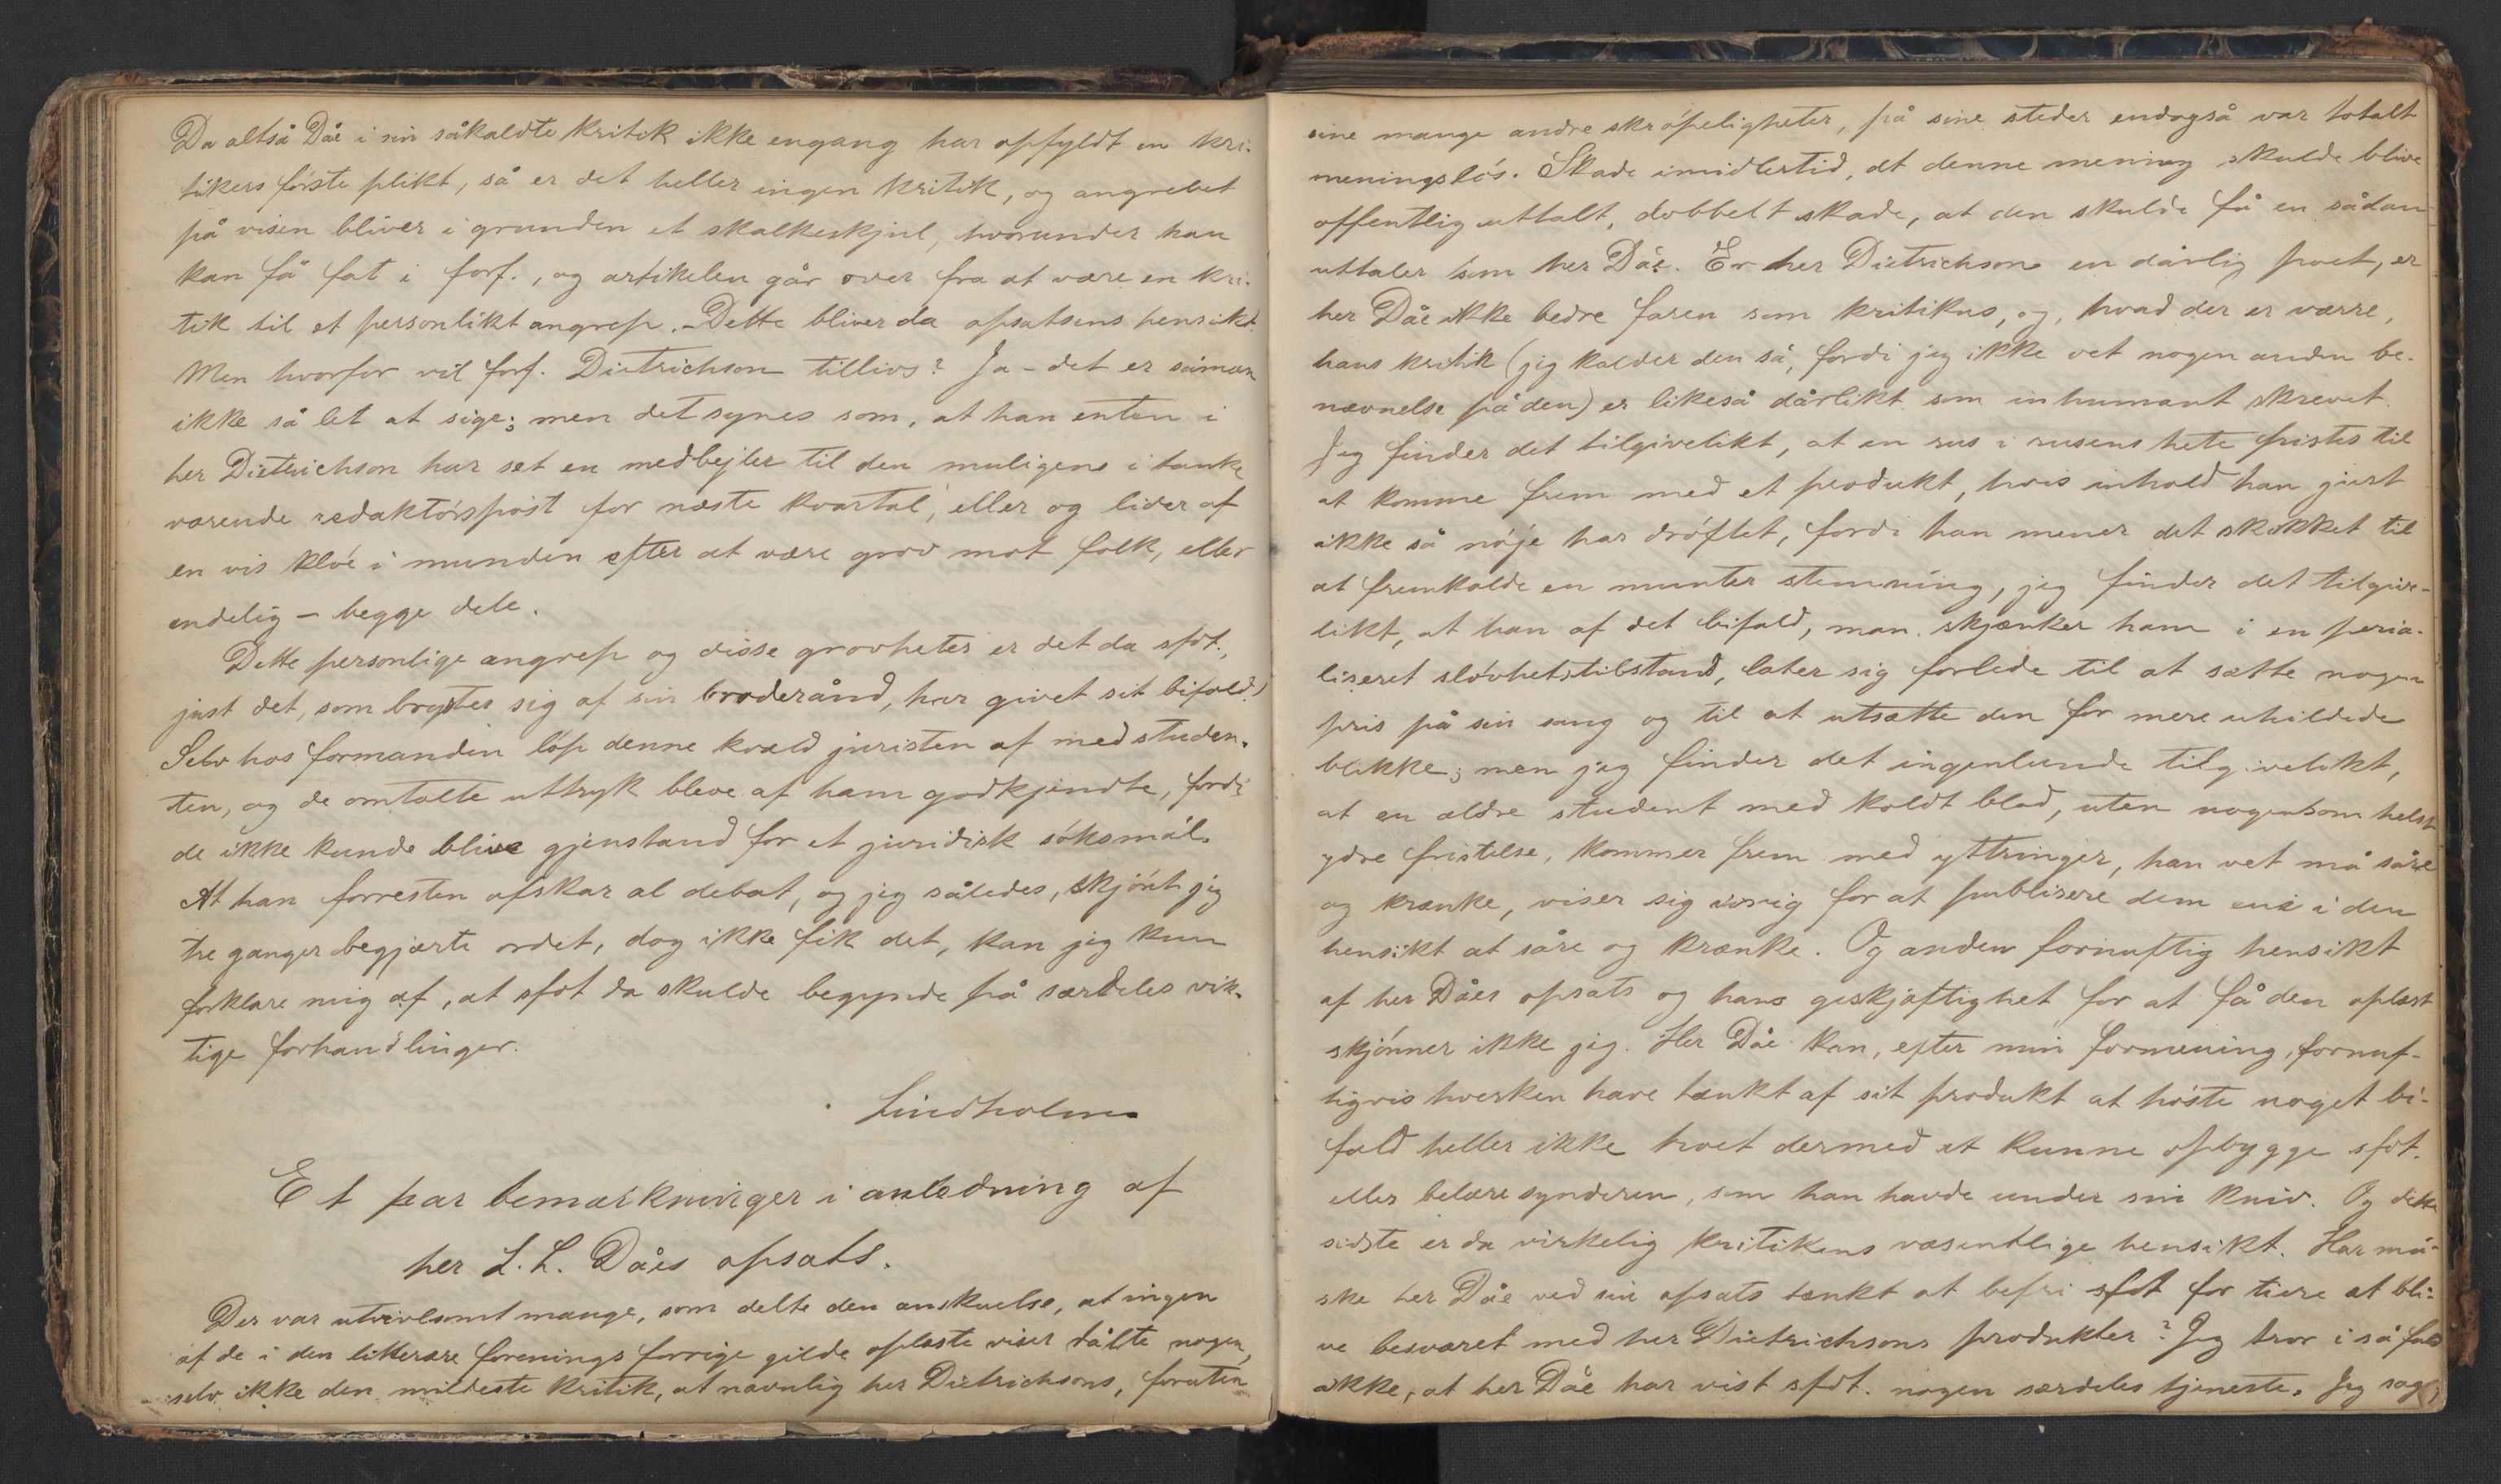 Da altså Dåe i sin såkaldte kritik ikke engang har opfyldt en kri-
tikers förste plikt, så er det heller ingen kritik, og angrebet
på visen bliver i grunden et skalkeskjul, hvorunder han
kan få fat i forf., og artikelen går over fra at være en kri-
tik til et personlikt angrep. – Dette bliver da opsatsens hensikt.
Men hvorfor vil forf. Dietrichson tillivs? Ja – det er såmæn
ikke så let at sige; men det synes som, at han enten i
her Dietrichson har set en medbejler til den muligens i tanke
værende redaktörspost for næste kvartal, eller og lider af
en vis klöe i munden efter at være grov mot folk, eller
endelig – begge dele.
Dette personlige angrep og disse grovheter er det da sfdt.,
just det, som bryster sig af sin broderånd, har givet sit bifald!
Selv hos formanden löp denne kvæld juristen af med studen-
ten, og de omtalte uttryk bleve af ham godkjendte, fordi
de ikke kunde blive gjenstand for et juridisk söksmål.
At han forresten afskar al debat, og jeg således, skjönt jeg
tre ganger begjærte ordet, dog ikke fik det, kan jeg kun
forklare mig af, at sfdt da skulde begynde på særdeles vik-
tige forhandlinger.
Lindholm
Et par bemærkninger i anledning af
her L. L. Dåes opsats.
Der var utvivlsomt mange, som delte den anskuelse, at ingen
af de i den litterære forenings forrige gilde oplæste viser tålte nogen,
selv ikke den mildeste kritik, at navnlig her Dietrichsons, foruten
sine mange andre skröpeligheter, på sine steder endogså var totalt
meningslös. Skade imidlertid, at denne mening skulde blive
offentlig uttalt, dobbelt skade, at den skulde få en sådan
uttaler som her Dåe. Er her Dietrichson en dårlig poet, er
her Dåe ikke bedre faren som kritikus, og, hvad der er værre,
hans kritik (jeg kalder den så, fordi jeg ikke vet nogen anden be-
nævnelse på den) er likeså dårlikt som inhumant skrevet.
Jeg finder det tilgivelikt, at en rus i rusens hete fristes til
at komme frem med et produkt, hvis inhold han just
ikke så nöje har dröftet, fordi han mener det skikket til
at fremkalde en munter stemning, jeg finder det tilgive-
likt, at han af det bifald, man skjænker ham i en peria-
liseret slövhetstilstand, later sig forlede til at sætte nogen
pris på sin sang og til at utsætte den for mere uhildede
blikke; men jeg finder det ingenlunde tilgivelikt,
at en ældre student med koldt blod, uten nogensom helst
ydre fristelse, kommer frem med yttringer, han vet må såre
og krænke, viser sig ivrig for at publisere dem ene i den
hensikt at såre og krænke. Og anden fornuftig hensikt
af her Dåes opsats og hans geskjæftighet for at få den oplæst
skjönner ikke jeg. Her Dåe kan, efter min formening, fornuf-
tigvis hverken have tænkt af sit produkt at höste noget bi-
fald heller ikke troet dermed at kunne opbygge sfdt.
eller belære synderen, som han havde under sin kniv. Og dette
sidste er da virkelig kritikens væsentlige hensikt. Har må-
ske her Dåe ved sin opsats tænkt at befri sfdt for tiere at bli-
ve besværet med her Dietrichsons produkter? Jeg tror i så fald
ikke, at her Dåe har vist sfdt. nogen særdeles tjeneste. Jeg sag